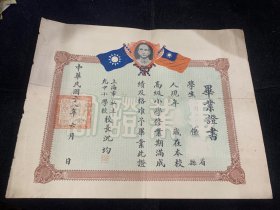 畢業證書
學生 係 省 縣
人現年 歲在本校
高級小學修業期滿成
績及格准予畢業此證
上海市私立
光中小學校校長沈均
中華民國 年 月 日